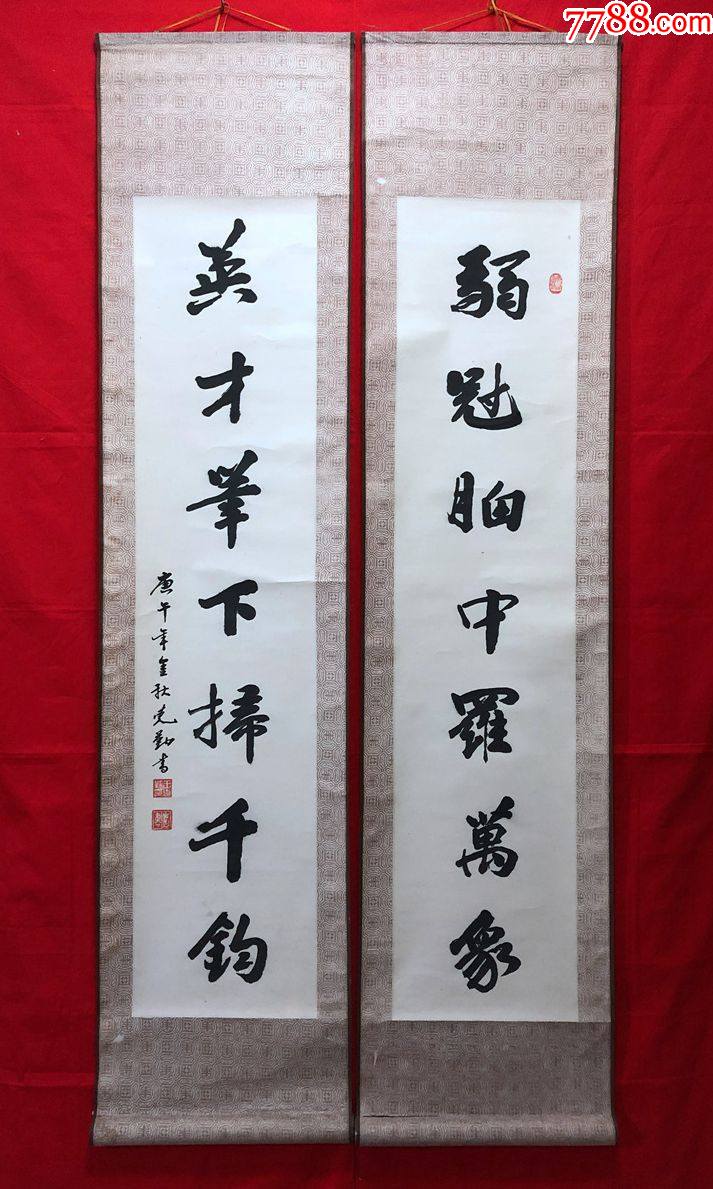 7788.com
弱冠胸中羅萬象
英才筆下掃千鈞
庚午年金秋克勤書